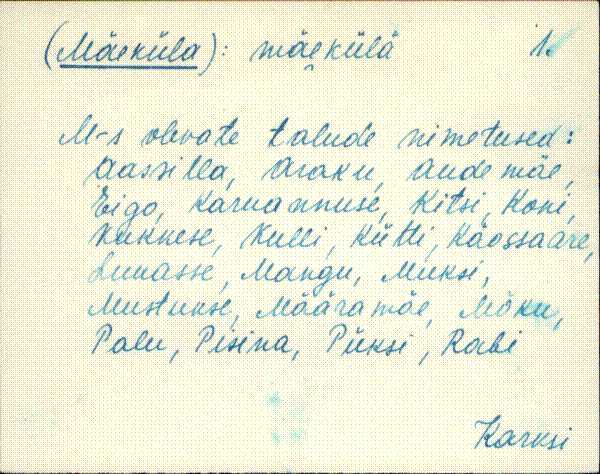 (Mäeküla): mäekülä 1.
M-s olevate talude nimetused:
Aassilla, Araku, Audemäe,
Eigo, Karuannuse, Kitsi, Koni,
Kuknese, Kulli, Kütti, Käossaare,
Luuasse, Mangu, Muksi,
Mustukse, Määramäe, Mõku,
Palu, Pisina, Püksi, Rabi
Karksi